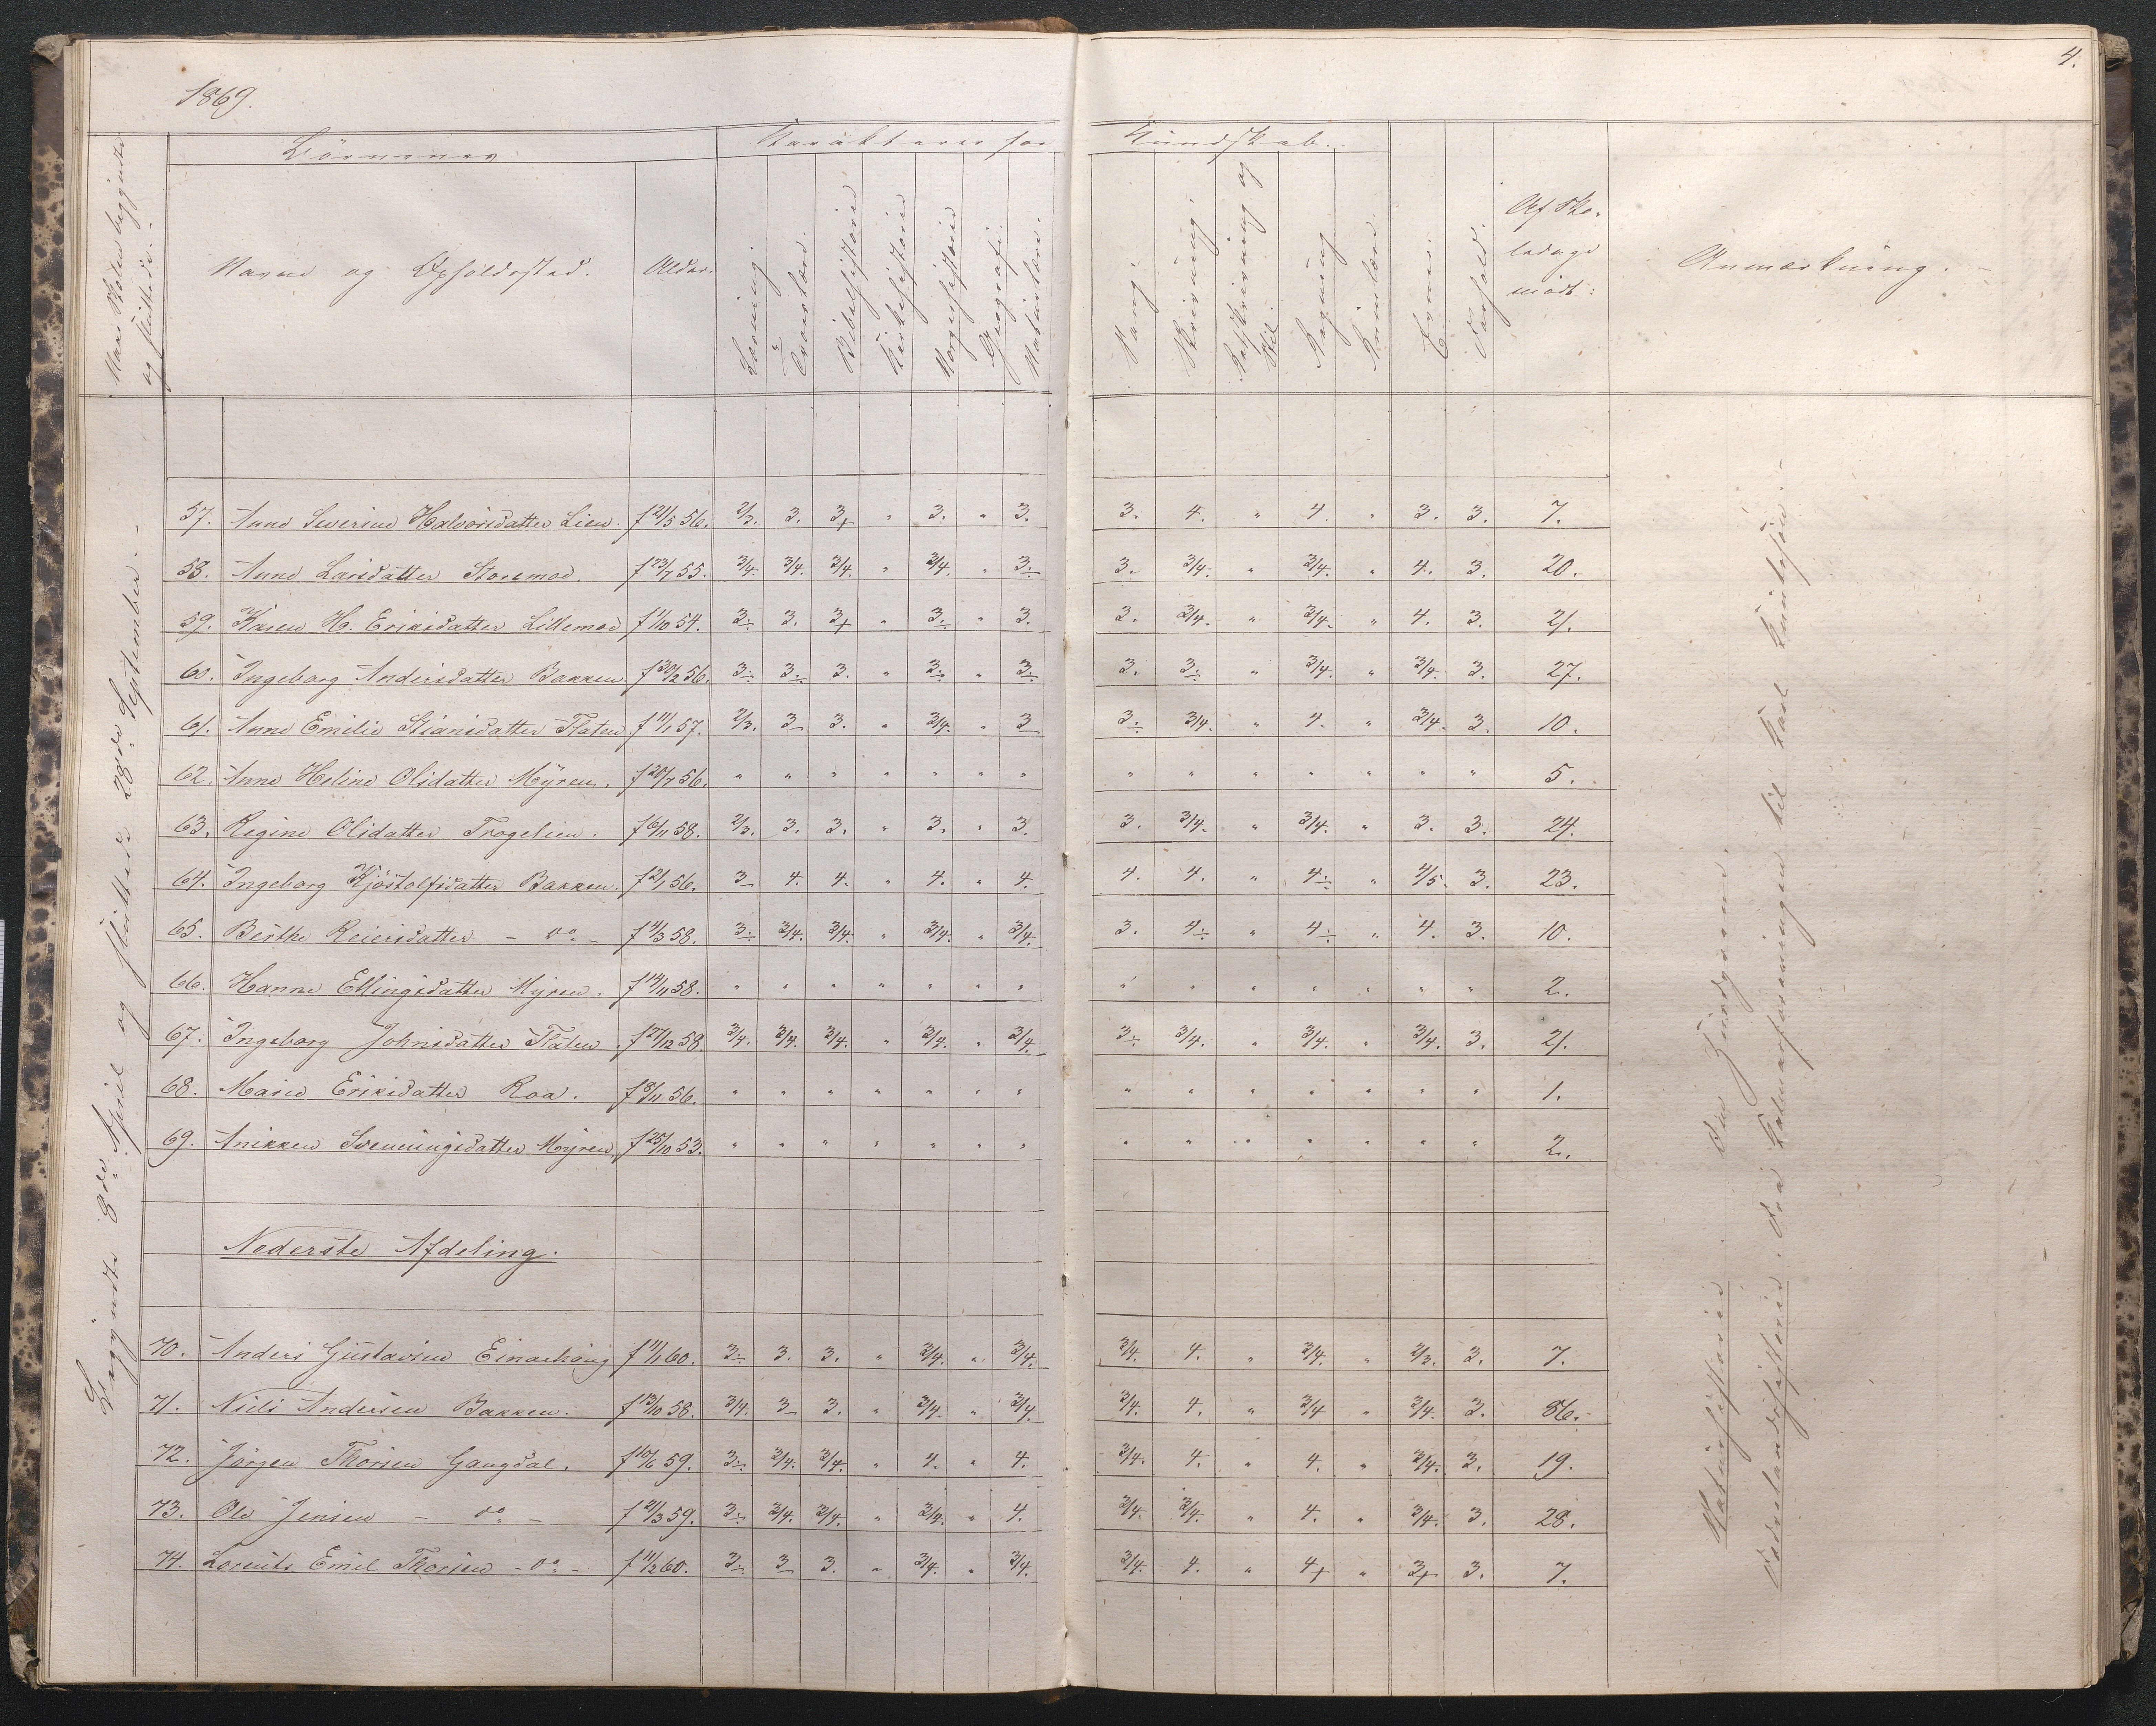 1869.
4.
Naar Skolen begyndte
og sluttede. -
Börnenes
Karakterer for
Kundskab.
Navne og Opholdssted.
Alder.
Læsning
Troeslære.
Bibelhistorie
Kirkehistorie
Norgeshistorie
Geografi.
Naturlære.
Sang
Skrivning
Retskrivning og
Stil.
Regning
Evner.
Forhold.
Af Sko-
ledage
mödt:
Anmærkning. -
Begyndte 8de April og sluttede 28de September. -
57. Anne Severine Halvorsdatter Lien. f 21/5 56. 2/3. 3. 3+ " 3. " 3. 3. 4. " 4. " 3. 3. 7.
58. Anne Larsdatter Storemoe. f 23/7 55. 3/4. 3/4. 3/4. " 3/4. " 3÷ 3. 3/4. " 3/4. " 4. 3. 20.
59. Karen H. Eriksdatter Lillemoe f 1/10 54. 3÷ 3. 3+ " 3÷ " 3. 3. 3/4. " 3/4. " 4. 3. 21.
60. Ingeborg Andersdatter Bakken. f 30/2 56. 3÷ 3÷ 3. " 3÷ " 3÷ 3. 3÷ " 3/4. " 3/4. 3. 27.
61. Anne Emilie Stiansdatter Flaten f 11/1 57. 2/3. 3 3. " 3/4. " 3 3÷ 3/4. " 4. " 3/4. 3. 10.
62. Anne Heline Olsdatter Myren. f 20/7 56. " " " " " " " " " " " " " " 5.
63. Regine Olsdatter Trogelien. f 6/11 58. 2/3. 3. 3. " 3. " 3. 3. 3/4. " 3/4. " 3. 3. 24.
64. Ingeborg Kjöstolfsdatter Bakken. f 2/1 56. 3 4. 4. " 4. " 4. 4. 4. " 4÷ " 4/5. 3. 23.
65. Berthe Reiersdatter - do - f 4/3 58. 3÷ 3/4. 3/4. " 3/4. " 3/4. 3. 4÷ " 4÷ " 4. 3. 10.
66. Hanne Ellingsdatter Myren. f 14/11 58. " " " " " " " " " " " " " " 2.
67. Ingeborg Johnsdatter Flaten. f 27/12 58. 3/4. 3/4. 3/4. " 3/4. " 3/4. 3÷ 3/4. " 3/4. " 3/4. 3. 21.
68. Maria Eriksdatter Roa. f 8/11 56. " " " " " " " " " " " " " " 1.
69. Anikken Svenningsdatter Myren. f 25/10 53. " " " " " " " " " " " " " " 2.
Nederste Afdeling.
70. Anders Gustavsen Einarhaug f 11/1 60. 3÷ 3. 3. " 3/4. " 3/4. 3/4. 4. " 3/4. " 2/3. 3. 7.
71. Niels Andersen Bakken. f 13/10 58. 3/4. 3 3. " 3/4. " 3/4. 3/4. 4. " 3/4 " 3/4. 3. 86.
72. Jörgen Thorsen Gangdal. f 10/6 59. 3÷ 3/4. 3/4. " 4. " 4. 3/4. 4. " 4. " 3/4. 3. 19.
73. Ole Jensen - do - f 21/3 59. 3÷ 3/4. 3/4. " 3/4. " 4. 3/4. 3/4. " 4. " 3/4. 3. 28.
74. Lorents Emil Thorsen - do - f 11/2 60. 3÷ 3 3. " 3/4. " 3/4. 3/4. 4. " 4+ " 3+ 3. 7.
Naturhistorie
Fædrelandshistorie. Fra Kalmarforeningen til